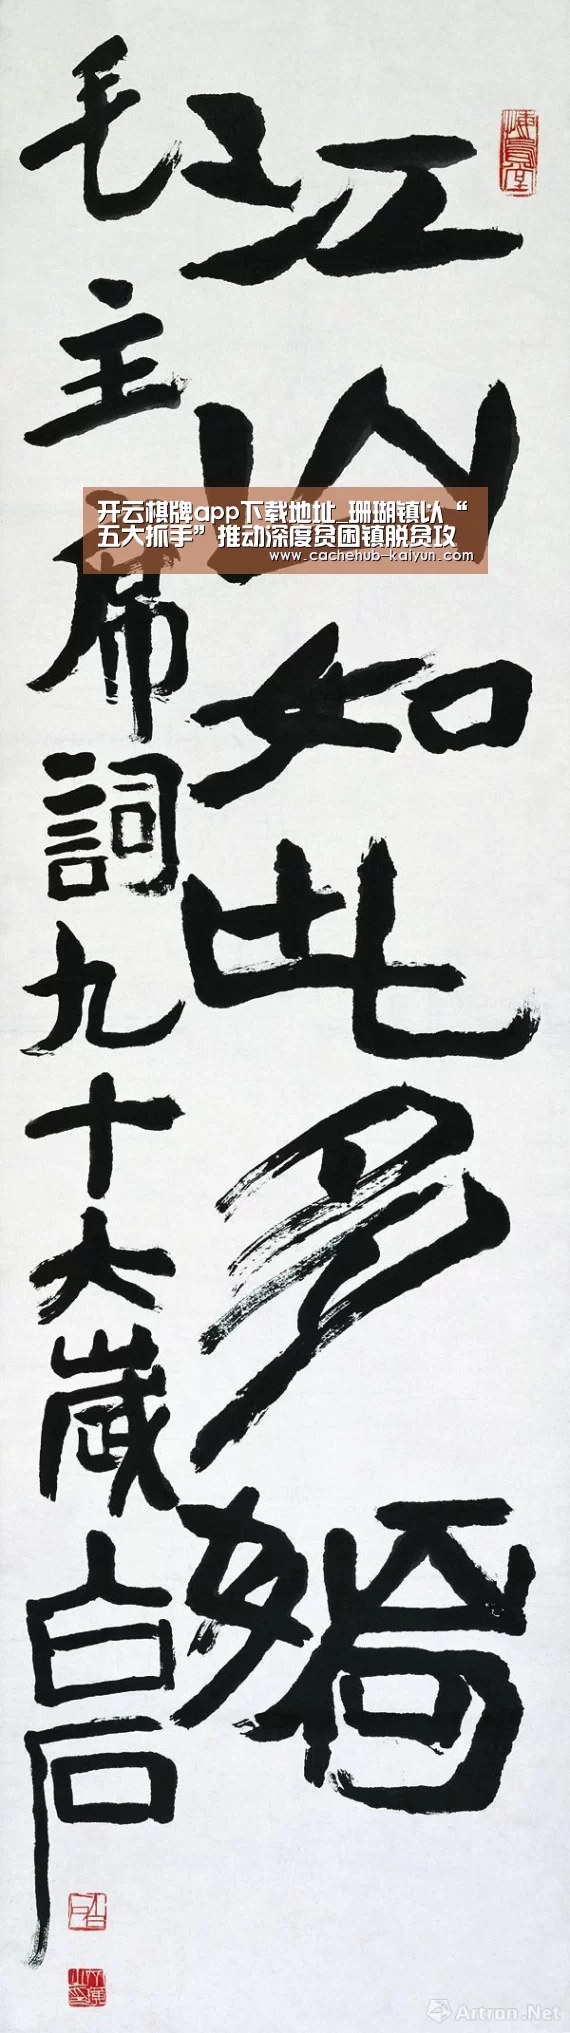 江山如此多嬌
毛主席詞九十六歲白石
开云棋牌app下载地址_珊瑚镇以“
五大抓手”推动深度贫困镇脱贫攻
www.cachehub-kaiyun.com
Artron.Net